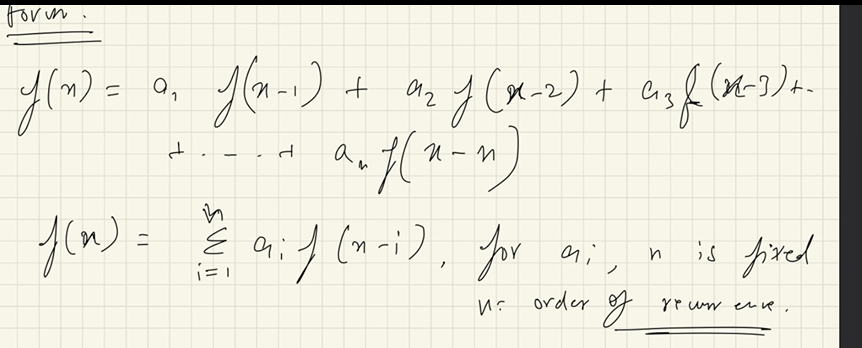 form.
f(n) = a₁ f(n-1) + a₂ f(n-2) + a₃ f(n-3) + -
+ . - . . + aₙ f(n-n)
f(n) = Σ_{i=1}^{n} aᵢ f(n-i), for aᵢ, n is fixed
n = order of recurrence.